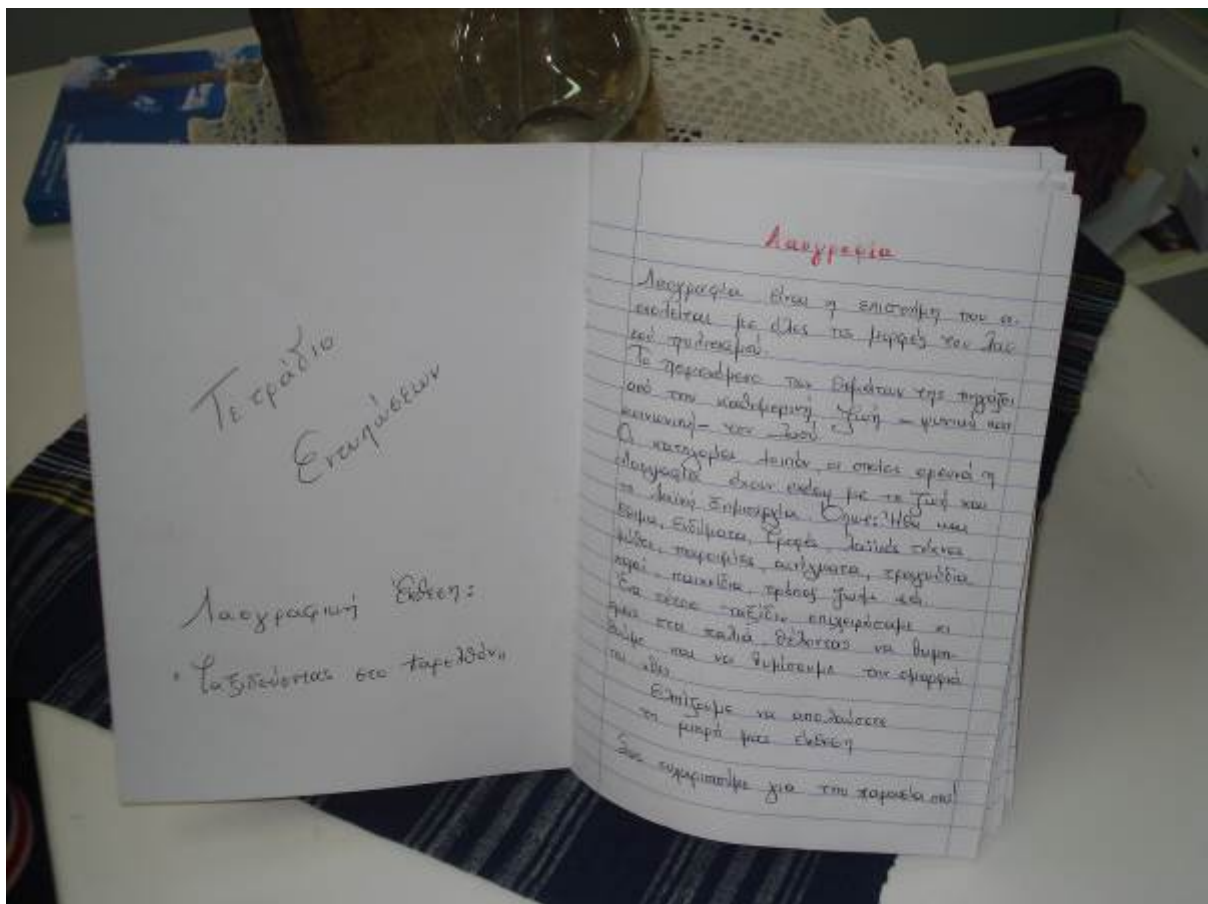 Τετράδιο
Εντυπώσεων
Λαογραφική Έκθεση:
"Ταξιδεύοντας στο παρελθόν"
Λαογραφία
Λαογραφία είναι η επιστήμη που α-
σχολείται με όλες τις μορφές του λαϊ
κού πολιτισμού.
Το περιεχόμενο των θεμάτων της πηγάζει
από την καθημερινή ζωή – φυσική και
κοινωνική – του λαού.
Οι κατηγορίες λοιπόν οι οποίες ερευνά η
Λαογραφία έχουν σχέση με τη ζωή και
τη λαϊκή δημιουργία. Όπως: Ήθη και
έθιμα, ενδύματα, τροφές, λαϊκές τέχνες
μύθοι, παροιμίες, αινίγματα, τραγούδια
χοροί, παιχνίδια, τρόπος ζωής κα.
Ένα τέτοιο ταξίδι επιχειρήσαμε κι
εμείς στα παλιά θέλοντας να θυμη-
θούμε και να θυμίσουμε την ομορφιά
του χθες.
Ελπίζουμε να απολαύσετε
τη μικρή μας έκθεση
Σας ευχαριστούμε για την παρουσία σας!